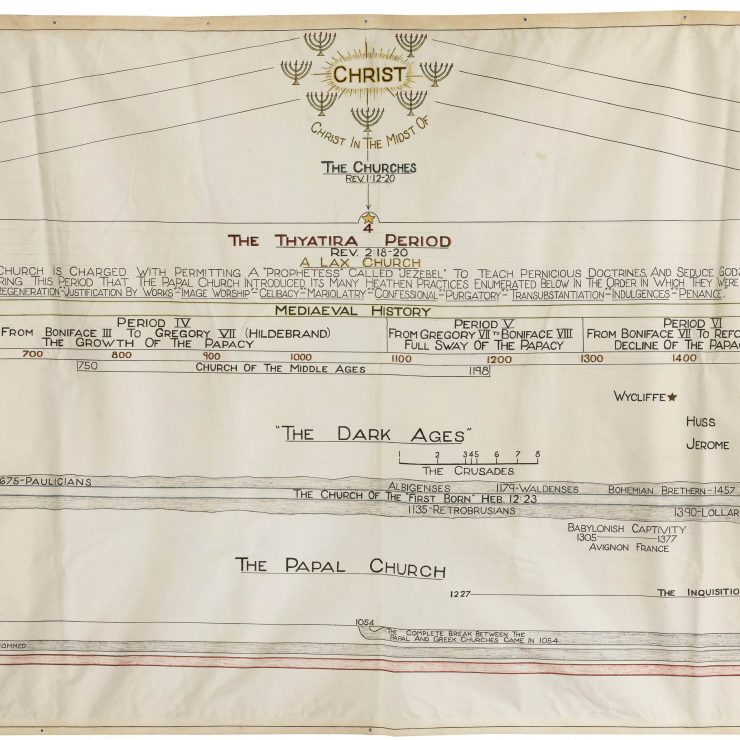 CHRIST
CHRIST IN THE MIDST OF
THE CHURCHES
REV. 1:12-20
4
THE THYATIRA PERIOD
REV. 2:18-20
A LAX CHURCH
CHURCH IS CHARGED WITH PERMITTING A "PROPHETESS" CALLED "JEZEBEL" TO TEACH PERNICIOUS DOCTRINES, AND SEDUCE GOD'
RING THIS PERIOD THAT THE PAPAL CHURCH INTRODUCED ITS MANY HEATHEN PRACTICES ENUMERATED BELOW IN THE ORDER IN WHICH THEY WERE
REGENERATION-JUSTIFICATION BY WORKS-IMAGE WORSHIP-CELIBACY-MARIOLATRY-CONFESSIONAL-PURGATORY-TRANSUBSTANTIATION-INDULGENCES-PENANCE.
MEDIAEVAL HISTORY
PERIOD IV
FROM BONIFACE III TO GREGORY VII (HILDEBRAND)
THE GROWTH OF THE PAPACY
PERIOD V
FROM GREGORY VII TO BONIFACE VIII
FULL SWAY OF THE PAPACY
PERIOD VI
FROM BONIFACE VII TO REFO
DECLINE OF THE PAPAC
700 800 900 1000 1100 1200 1300 1400
750 CHURCH OF THE MIDDLE AGES 1198
WYCLIFFE
HUSS
JEROME
"THE DARK AGES"
1 2 3 4 5 6 7 8
THE CRUSADES
675-PAULICIANS
ALBIGENSES 1179-WALDENSES BOHEMIAN BRETHERN-1457
THE CHURCH OF THE "FIRST BORN" HEB. 12:23
1135-RETROBRUSIANS 1390-LOLLAR
BABYLONISH CAPTIVITY
1305 1377
AVIGNON FRANCE
THE PAPAL CHURCH
1227 THE INQUISITIO
1054
THE COMPLETE BREAK BETWEEN THE
PAPAL AND GREEK CHURCHES CAME IN 1054